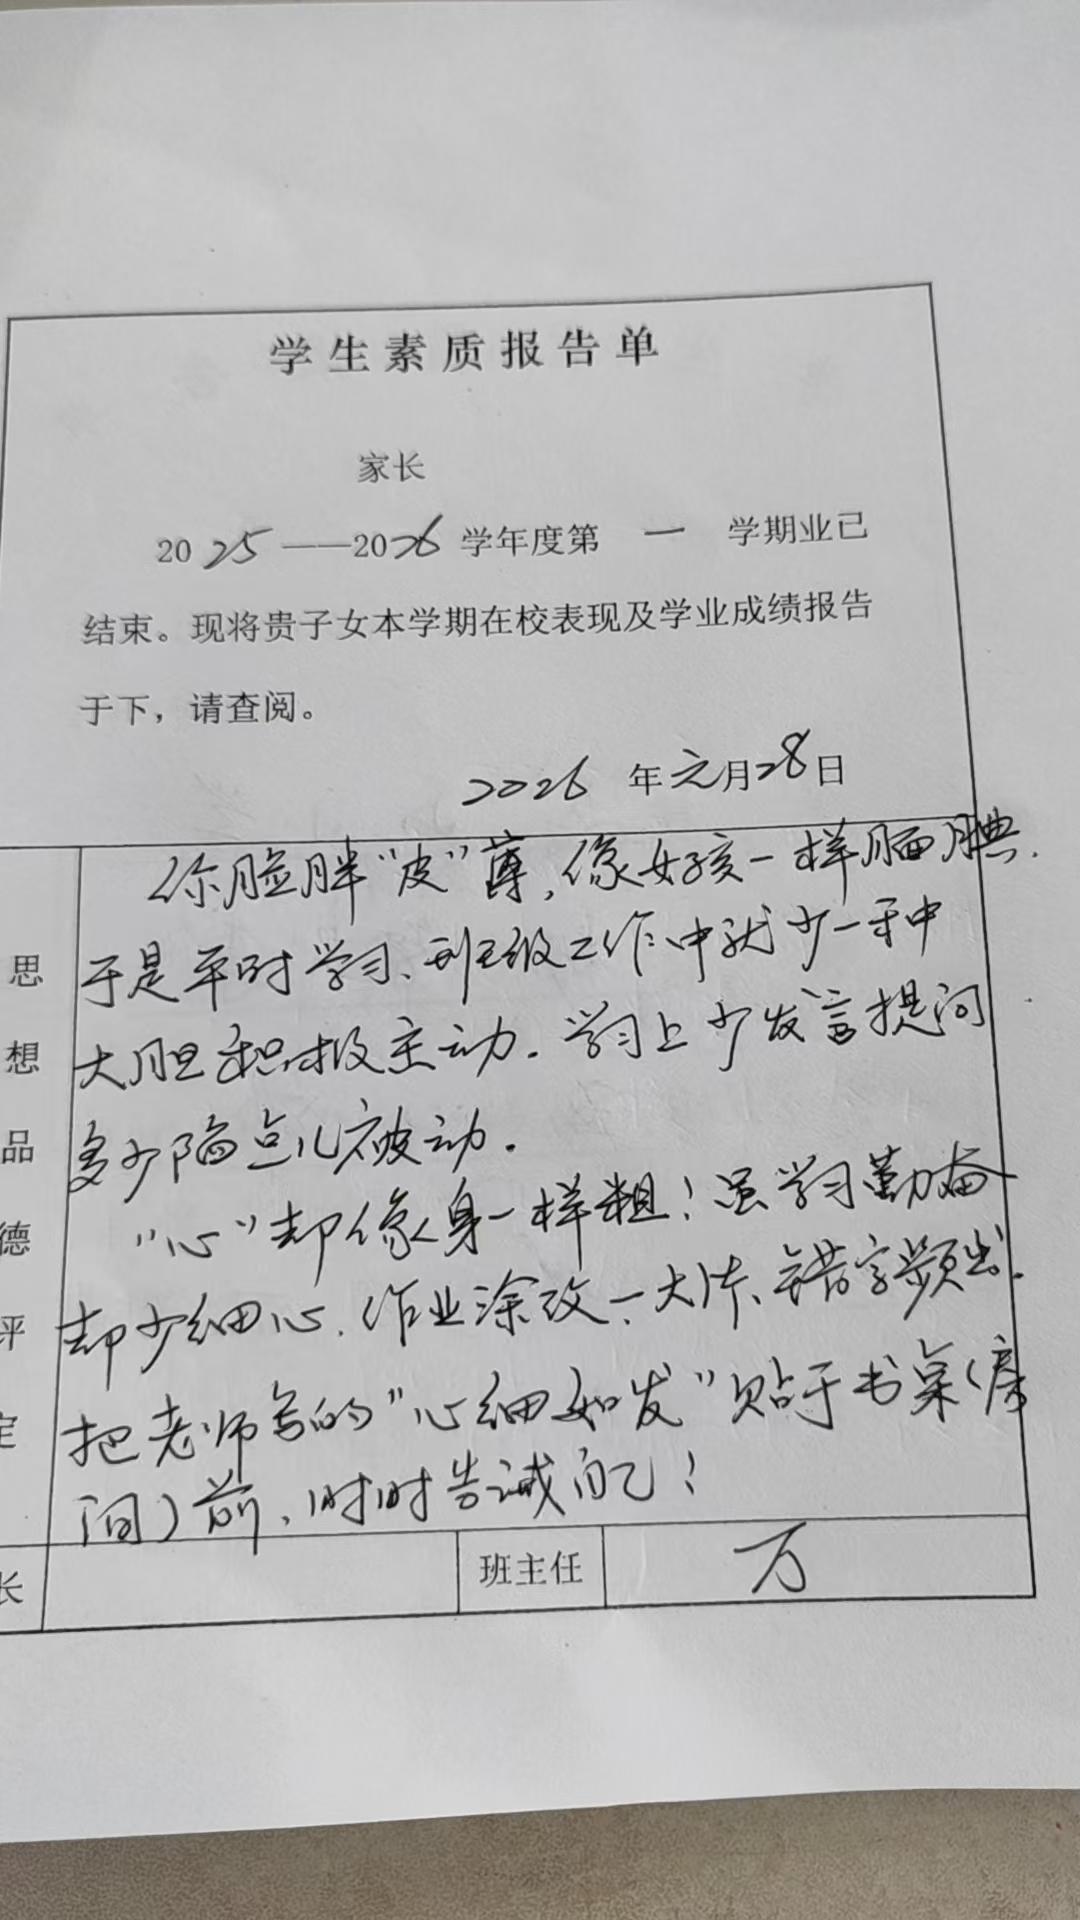 学生素质报告单
家长
2025——2026学年度第 一 学期业已
结束。现将贵子女本学期在校表现及学业成绩报告
于下，请查阅。
2026 年元月28日
思想品德评定
你脸胖“皮”薄，像女孩一样腼腆.
于是平时学习、班级工作中就少一种
大胆积极主动.学习上少发言提问
多少陷点儿被动.
“心”却像身一样粗！虽学习勤奋
却少细心.作业涂改一大片、错字频出.
把老师写的“心细如发”贴于书桌（房
间）前，时时告诫自己！
长
班主任
万